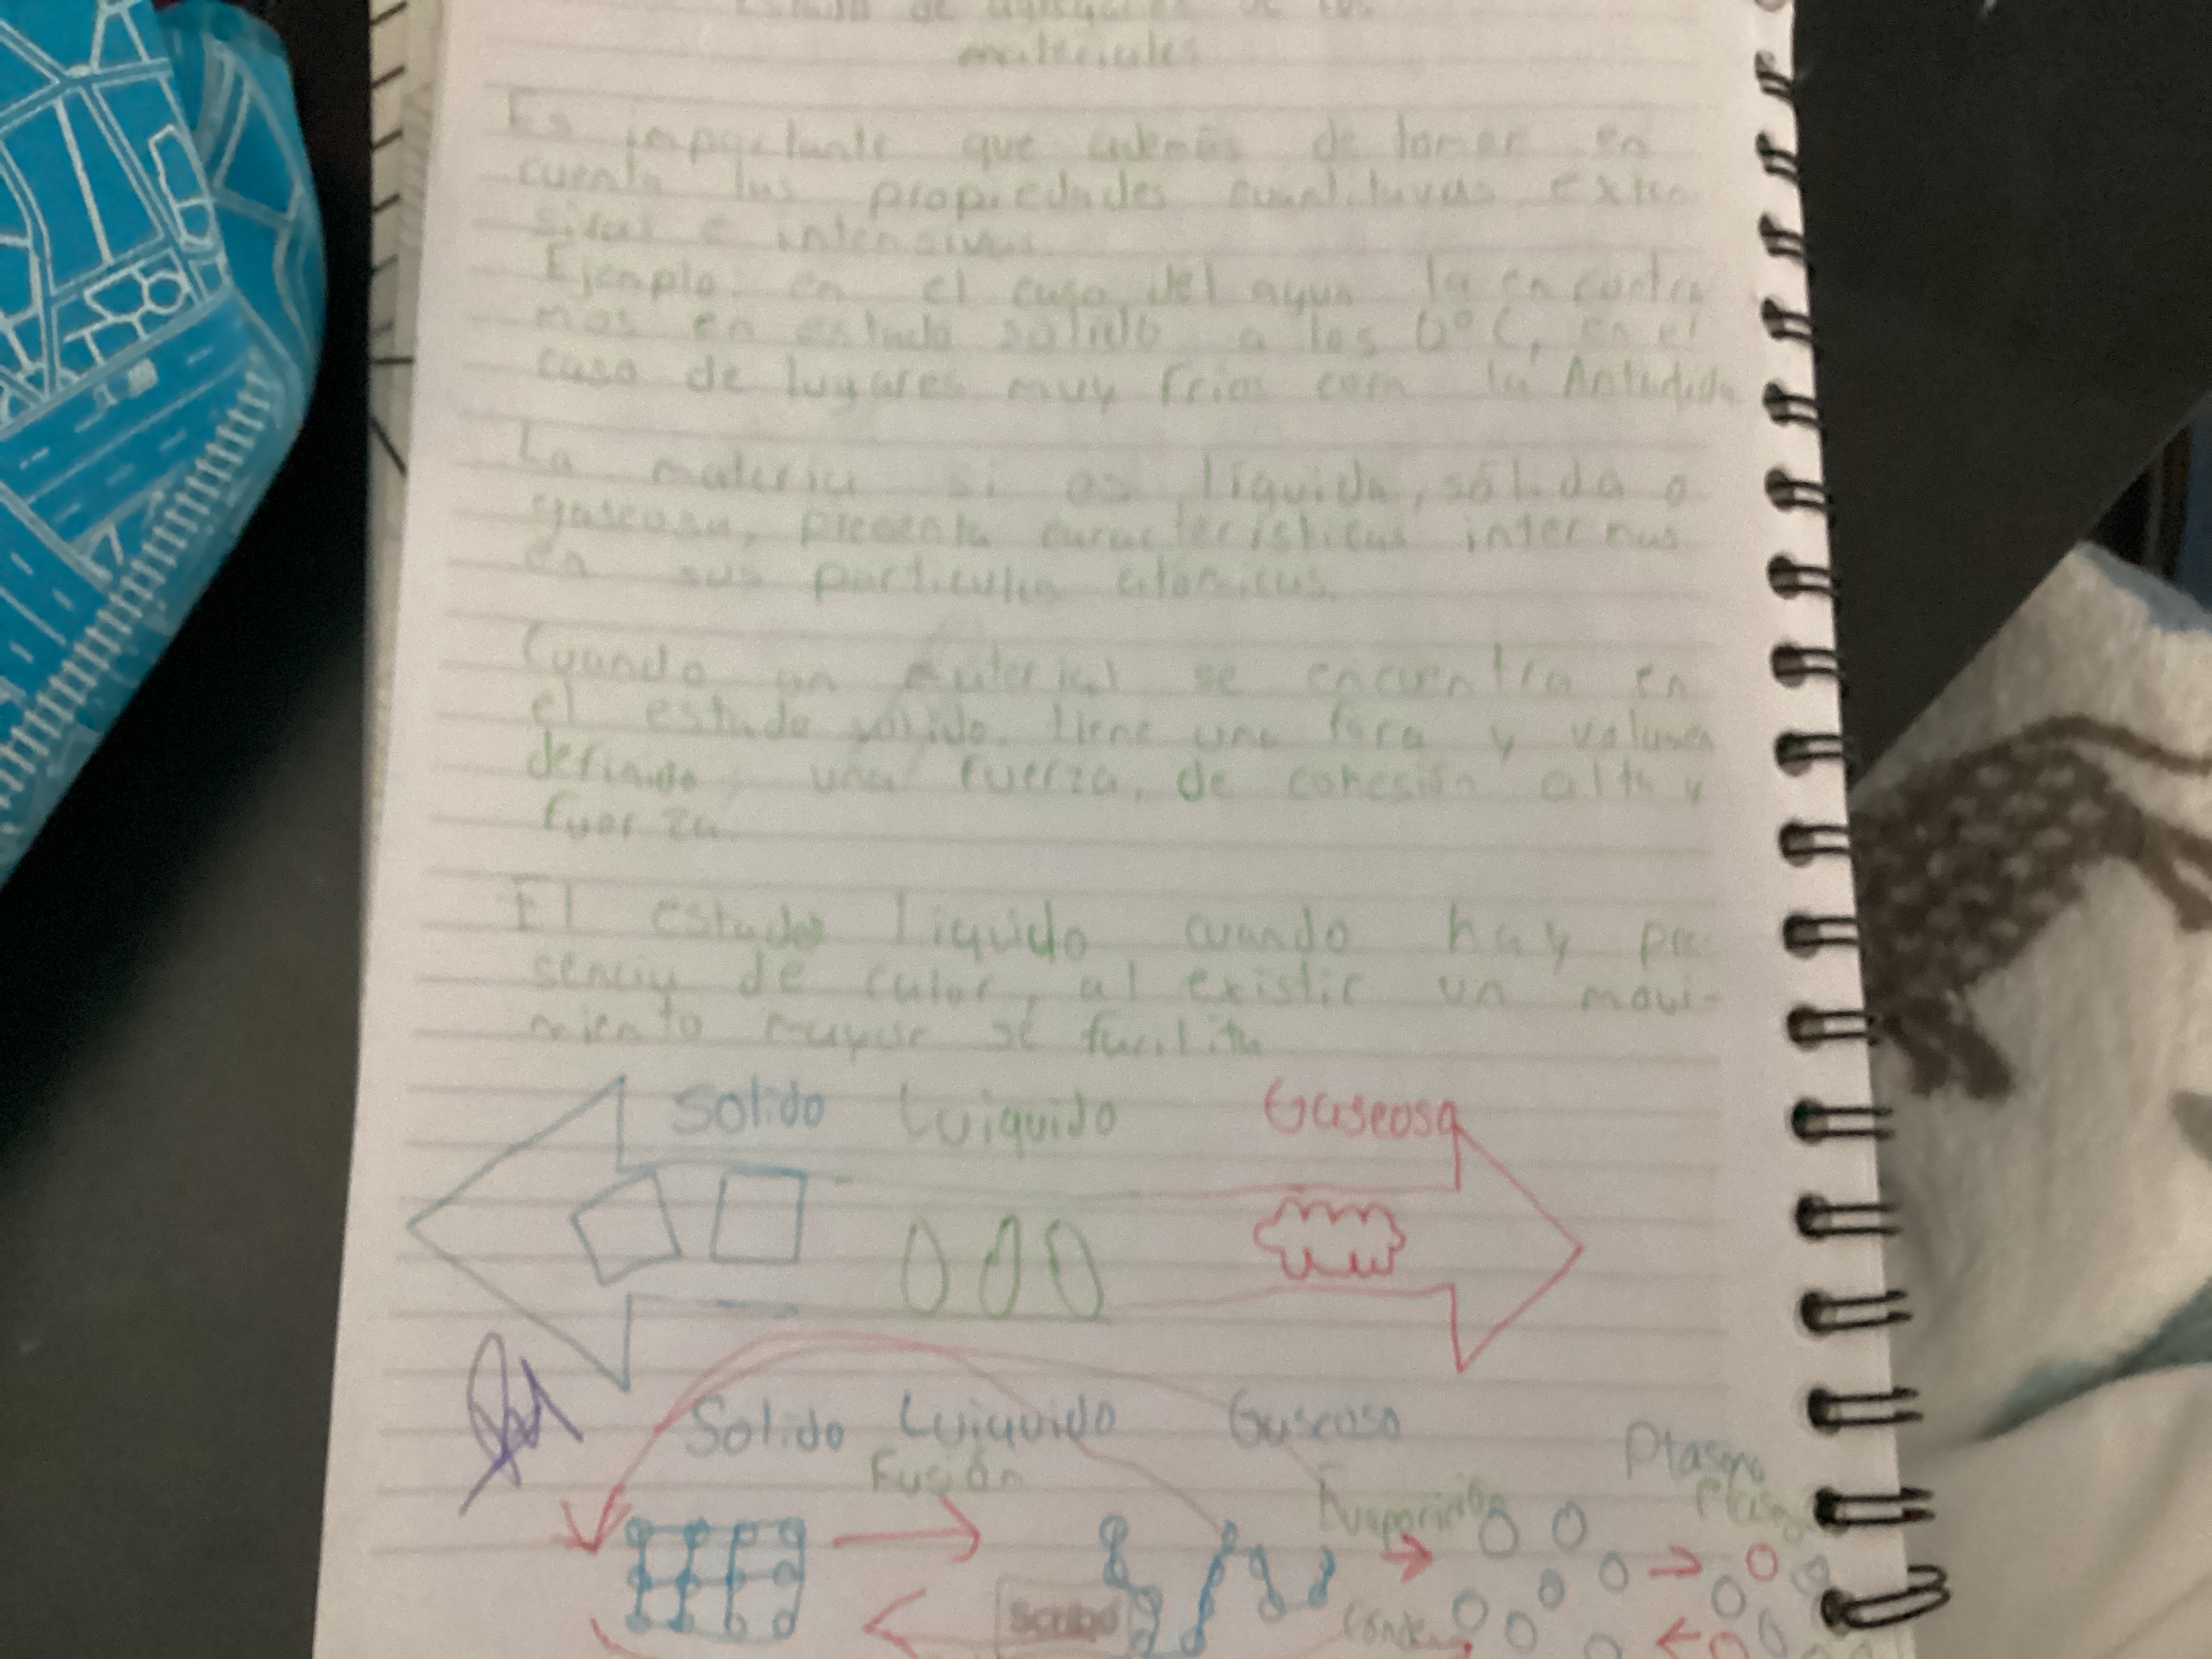 materiales
Es importante que además de tomar en
cuenta las propiedades cualitativas exten-
sivas e intensivas.
Ejemplo. en el caso del agua la encontra
mos en estado sólido a los 0°C, en el
caso de lugares muy frios com la Antartida
La materia si es líquida, sólida o
gaseosa, presenta características internas
en sus particulas atómicas.
Cuando un material se encuentra en
el estado sólido. tiene una fora y volumen
definido, una fuerza, de cohesión alta y
fuerza.
El estado liquido cuando hay pre
sencia de calor, al existir un movi-
miento mayor se facilita
Solido Luiquido Gaseosa
Solido Luiquido Gaseoso
Fusión
Plasma
Conden
Scribe